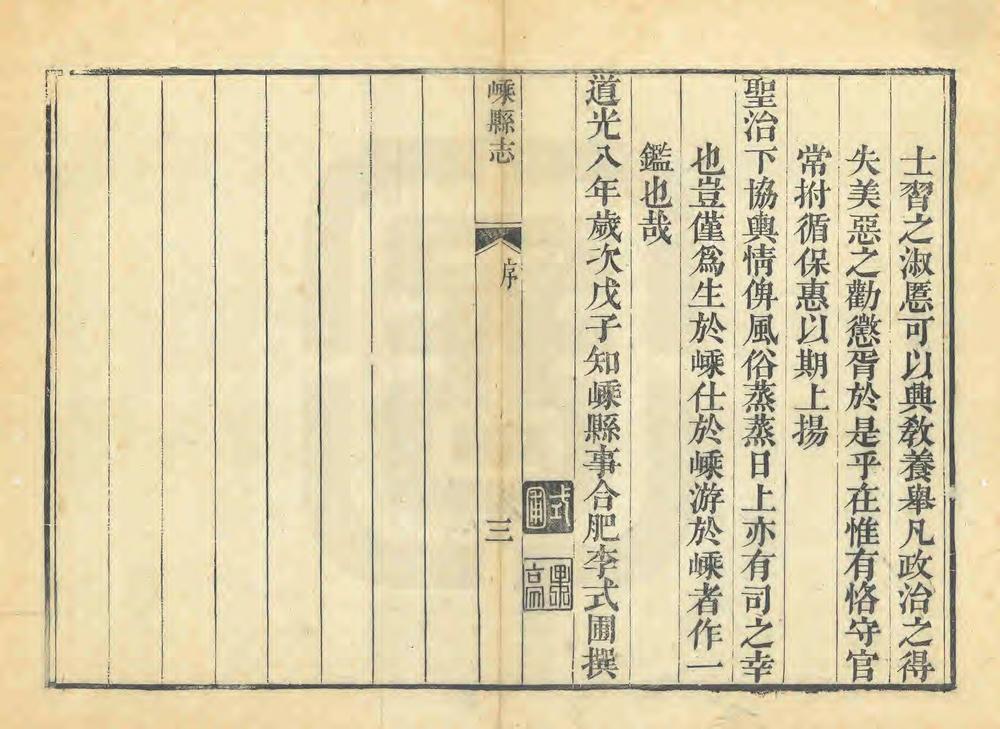 士習之淑慝可以興教養舉凡政治之得
失美惡之勸懲胥於是乎在惟有恪守官
常拊循保惠以期上揚
聖治下協輿情俾風俗蒸蒸日上亦有司之幸
也豈僅為生於嵊仕於嵊游於嵊者作一
鑑也哉
道光八年歲次戊子知嵊縣事合肥李式圃撰
式圃
嵊縣志
序
三